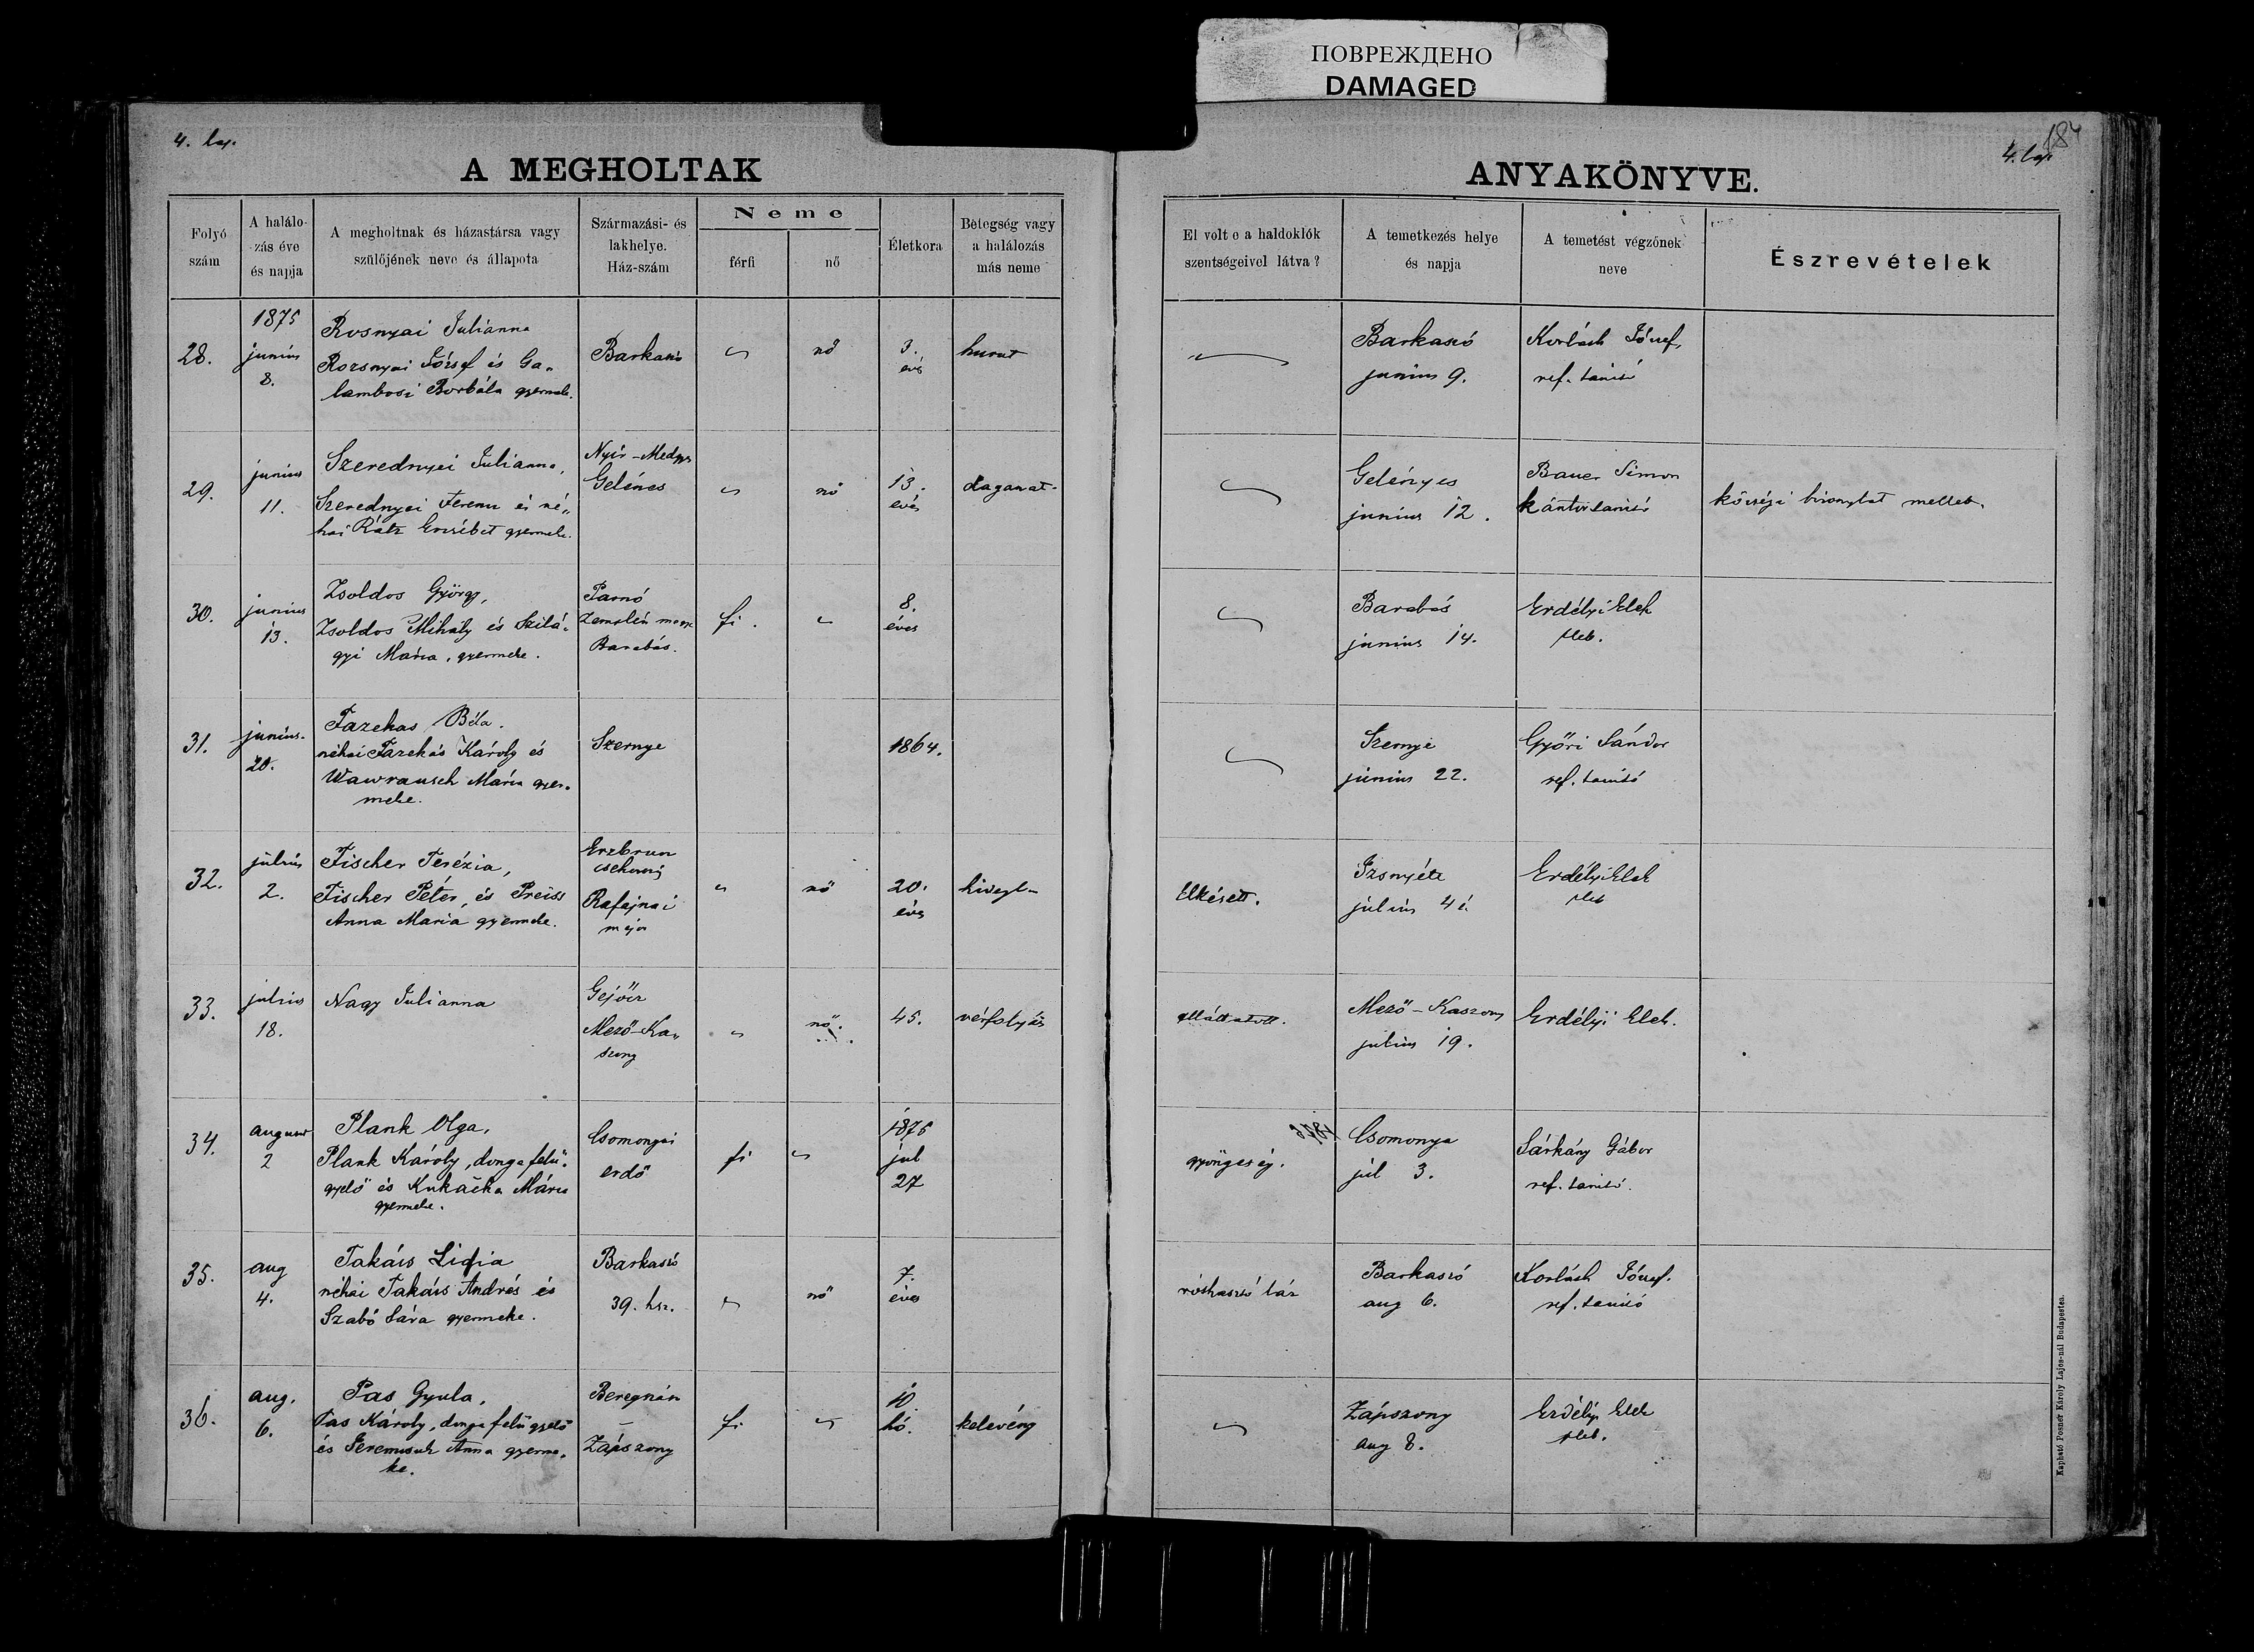 ПОВРЕЖДЕНО
DAMAGED
4. lap.
A MEGHOLTAK
Folyó szám
A halálo-zás éve és napja
A megholtnak és házastársa vagy szülőjének neve és állapota
Származási- és lakhelye. Ház-szám
Neme
férfi
nő
Életkora
Betegség vagy a halálozás más neme
28.
1875
junius
8.
Rosnyai Julianna
Rozsnyai József és Ga„
lambosi Borbála gyermeke.
Barkaszó
nő
3.
éves
hurut
29.
junius
11.
Szerednyei Julianna,
Szerednyei Ferenc és né„
hai Rátz Erzsébet gyermeke.
Nyír-Medgyes
Gelénes
nő
13.
éves
daganat
30.
junius
13.
Zsoldos György,
Zsoldos Mihály és Szilá-
gyi Mária, gyermeke.
Parnó
Zemplén megye
Barabás.
fi.
8.
éves
31.
junius.
20.
Fazekas Béla.
néhai Fazekas Károly és
Wawrausch Mária gyer-
meke.
Szernye
1864.
32.
julius
2.
Fischer Terézia,
Fischer Péter, és Preiss
Anna Mária gyermeke.
Rafajnai
major
nő
20.
éves
33.
julius
18.
Nagy Julianna
Gejőcz
Mező-Ka„
szony
nő.
45.
vérfolyás
34.
august
2
Plank Olga,
Plank Károly, dongafelü-
gyelő és Kukačka Mária
gyermeke.
Csomonyai
erdő
fi
1875
jul
27
35.
aug
4.
Takács Lidia
néhai Takács András és
Szabó Sára gyermeke.
Barkaszó
39. hsz.
nő
7.
éves
36.
aug.
6.
Pas Gyula,
Pas Károly, donga felügyelő
és Jeremisuk Anna gyerme„
ke.
Beregnán
Zápszony
fi
10
hó.
kelevény
184
4. lap
ANYAKÖNYVE.
El volt e a haldoklók szentségeivel látva?
A temetkezés helye és napja
A temetést végzőnek neve
Észrevételek
Barkaszó
junius 9.
Korláth József,
ref. tanitó
Gelényes
junius 12.
Bauer Simon
kántortanitó
községi bizonylat mellett.
Barabás
junius 14.
Erdélyi Elek
pleb.
Szernye
junius 22.
Győri Sándor
ref. tanitó
Elkésett.
Izsnyéte
julius 4
Erdélyi Elek
pleb
elláttatott.
Mező-Kaszony
julius 19.
Erdélyi Elek.
gyöngeség.
Csomonya
júl 3.
Sárkány Gábor
ref. tanitó.
Barkaszó
aug 6.
Korláth József.
ref. tanitó
Zápszony
aug 8.
Erdélyi Elek
pleb.
Kapható Posner Károly Lajos-nál Budapesten.